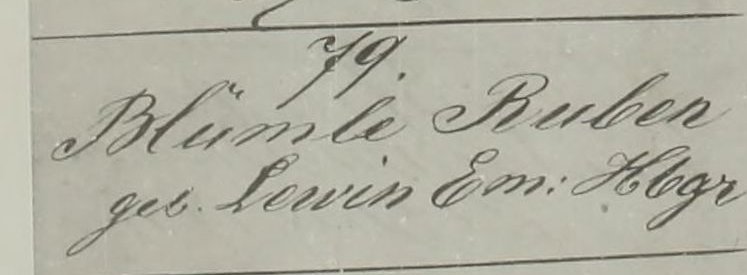 79.
Blümle Ruben
geb. Lewin Em: Hbgr